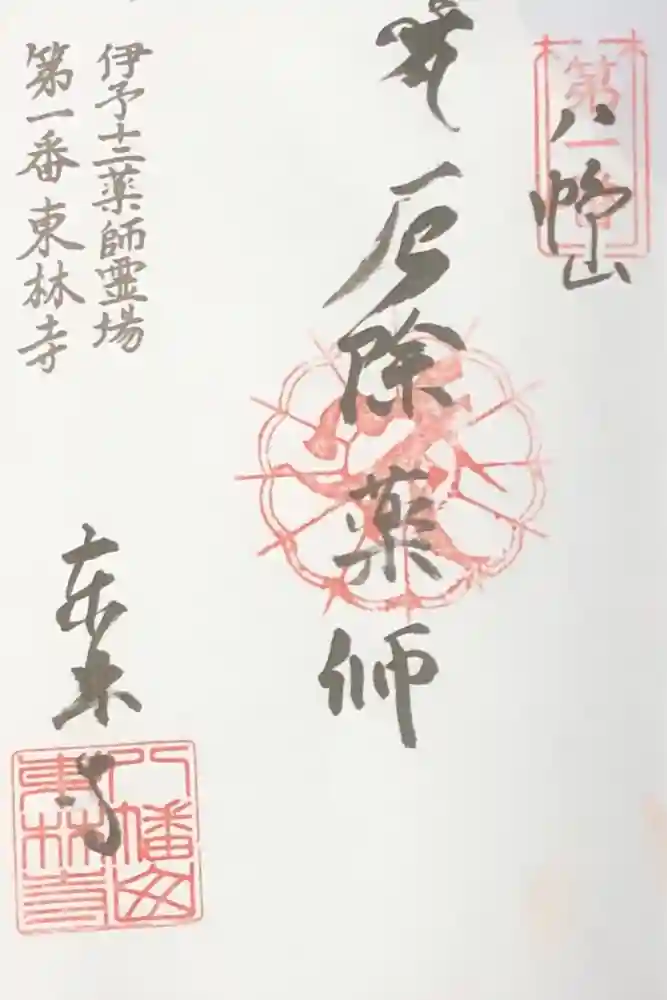 第一番
八幡山
厄除薬師
伊予十二薬師霊場
第一番東林寺
東林寺
八幡山
東林寺